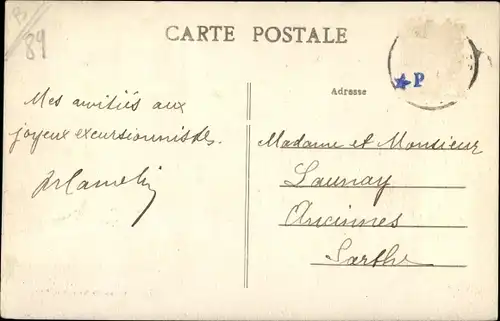 89
CARTE POSTALE
P
Adresse
Mes amitiés aux
joyeux excursionnistes.
Madame et Monsieur
Launay
Ancinnes
Sarthe